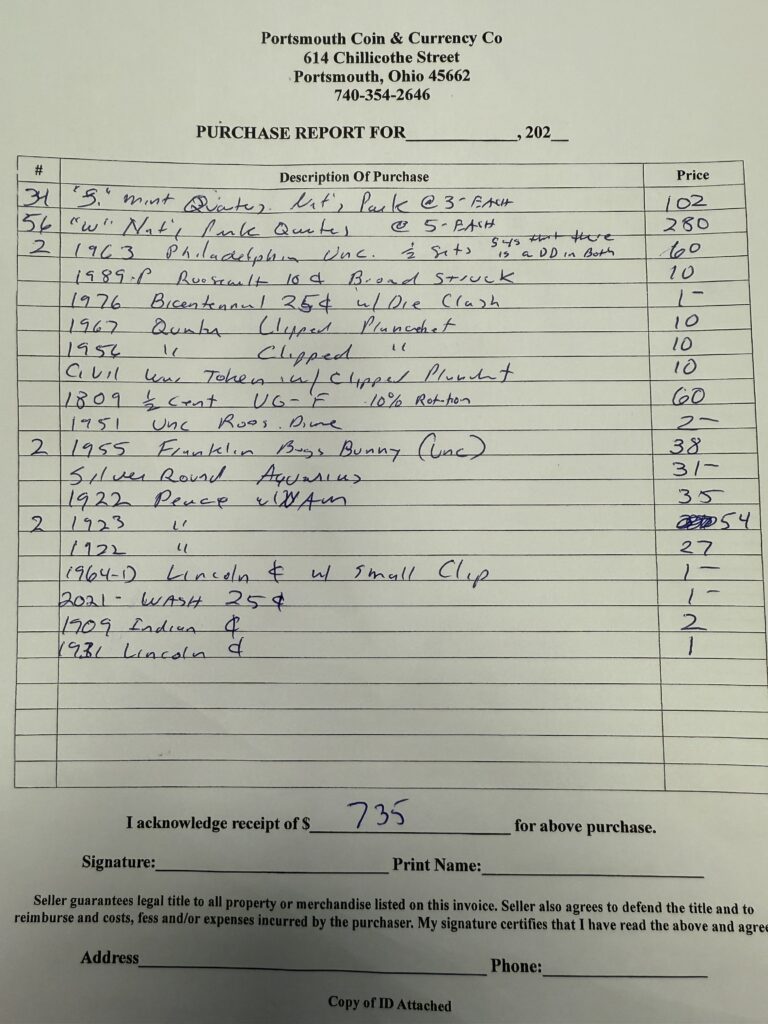 Portsmouth Coin & Currency Co
614 Chillicothe Street
Portsmouth, Ohio 45662
740-354-2646
PURCHASE REPORT FOR____________, 202__
# Description Of Purchase Price
34 "S" mint Quarters. Nat's Park @ 3- EACH 102
56 "W" Nat's Park Quarters @ 5- EACH 280
2 1963 Philadelphia Unc. ½ Sets Says that there is a DD in Both 60
1989-P Roosevelt 10¢ Broad Struck 10
1976 Bicentennial 25¢ w/ Die Clash 1-
1967 Quarter Clipped Planchet 10
1956 " Clipped " 10
Civil War Token w/ Clipped Planchet 10
1809 ½ Cent VG-F 10% Rotation 60
1951 Unc Roos. Dime 2-
2 1955 Franklin Bugs Bunny (Unc) 38
Silver Round Aquarius 31-
1922 Peace 35
2 1923 " 54
1922 " 27
1964-D Lincoln ¢ w/ Small Clip 1-
2021- WASH 25¢ 1-
1909 Indian ¢ 2
1931 Lincoln ¢ 1
I acknowledge receipt of $ 735 for above purchase.
Signature:____________ Print Name:____________
Seller guarantees legal title to all property or merchandise listed on this invoice. Seller also agrees to defend the title and to
reimburse and costs, fess and/or expenses incurred by the purchaser. My signature certifies that I have read the above and agree
Address____________ Phone:____________
Copy of ID Attached